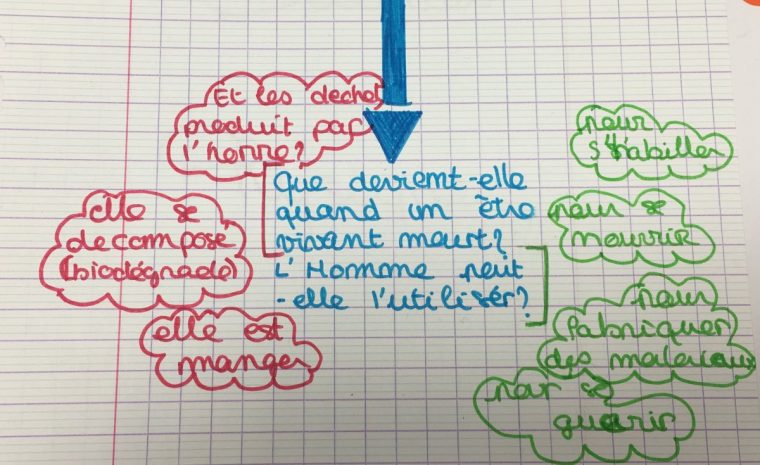 Et les dechets
produit par
l'homme?
Que devient-elle
quand un être
vivant meurt?
L'Homme peut
-elle l'utiliser?
elle se
decomposé
(biodégradé)
elle est
manger
pour
s'habiller
pour se
nourrir
pour
fabriquer
des materiaux
pour se
guérir